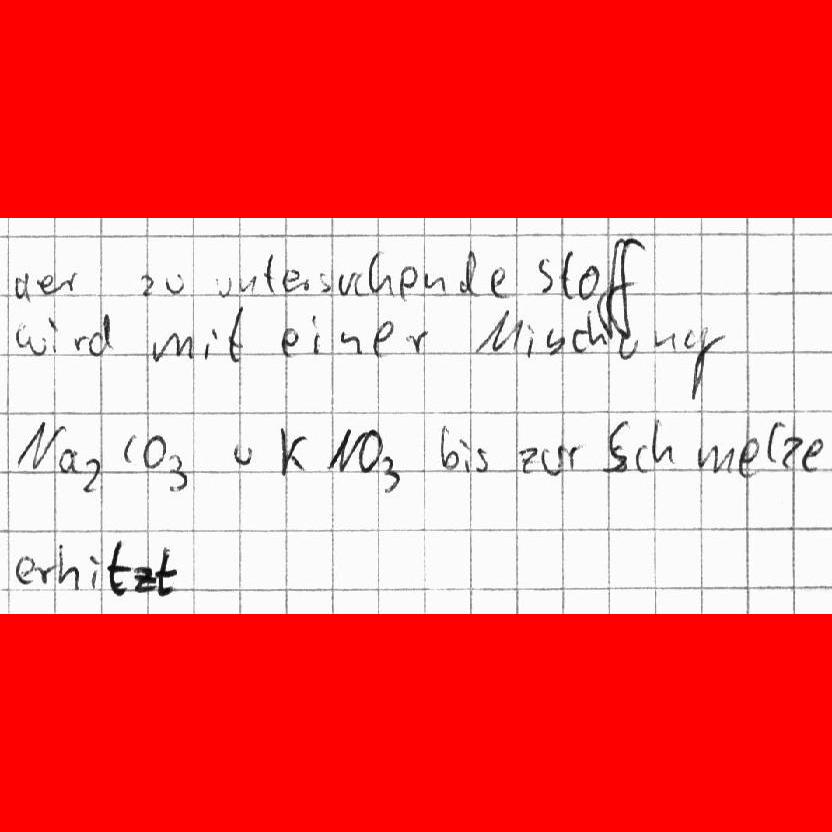 der zu untersuchende Stoff
wird mit einer Mischung
Na₂CO₃ u KNO₃ bis zur Schmelze
erhitzt